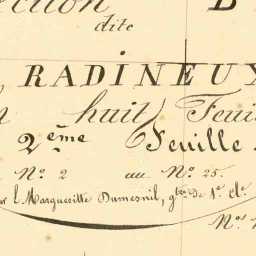 ection
dite
RADINEUX
huit Feuil
2ème Feuille
Nº 2 au Nº 25.
l. Margueritte Dumesnil, gbre de 1e Cle.
Nº